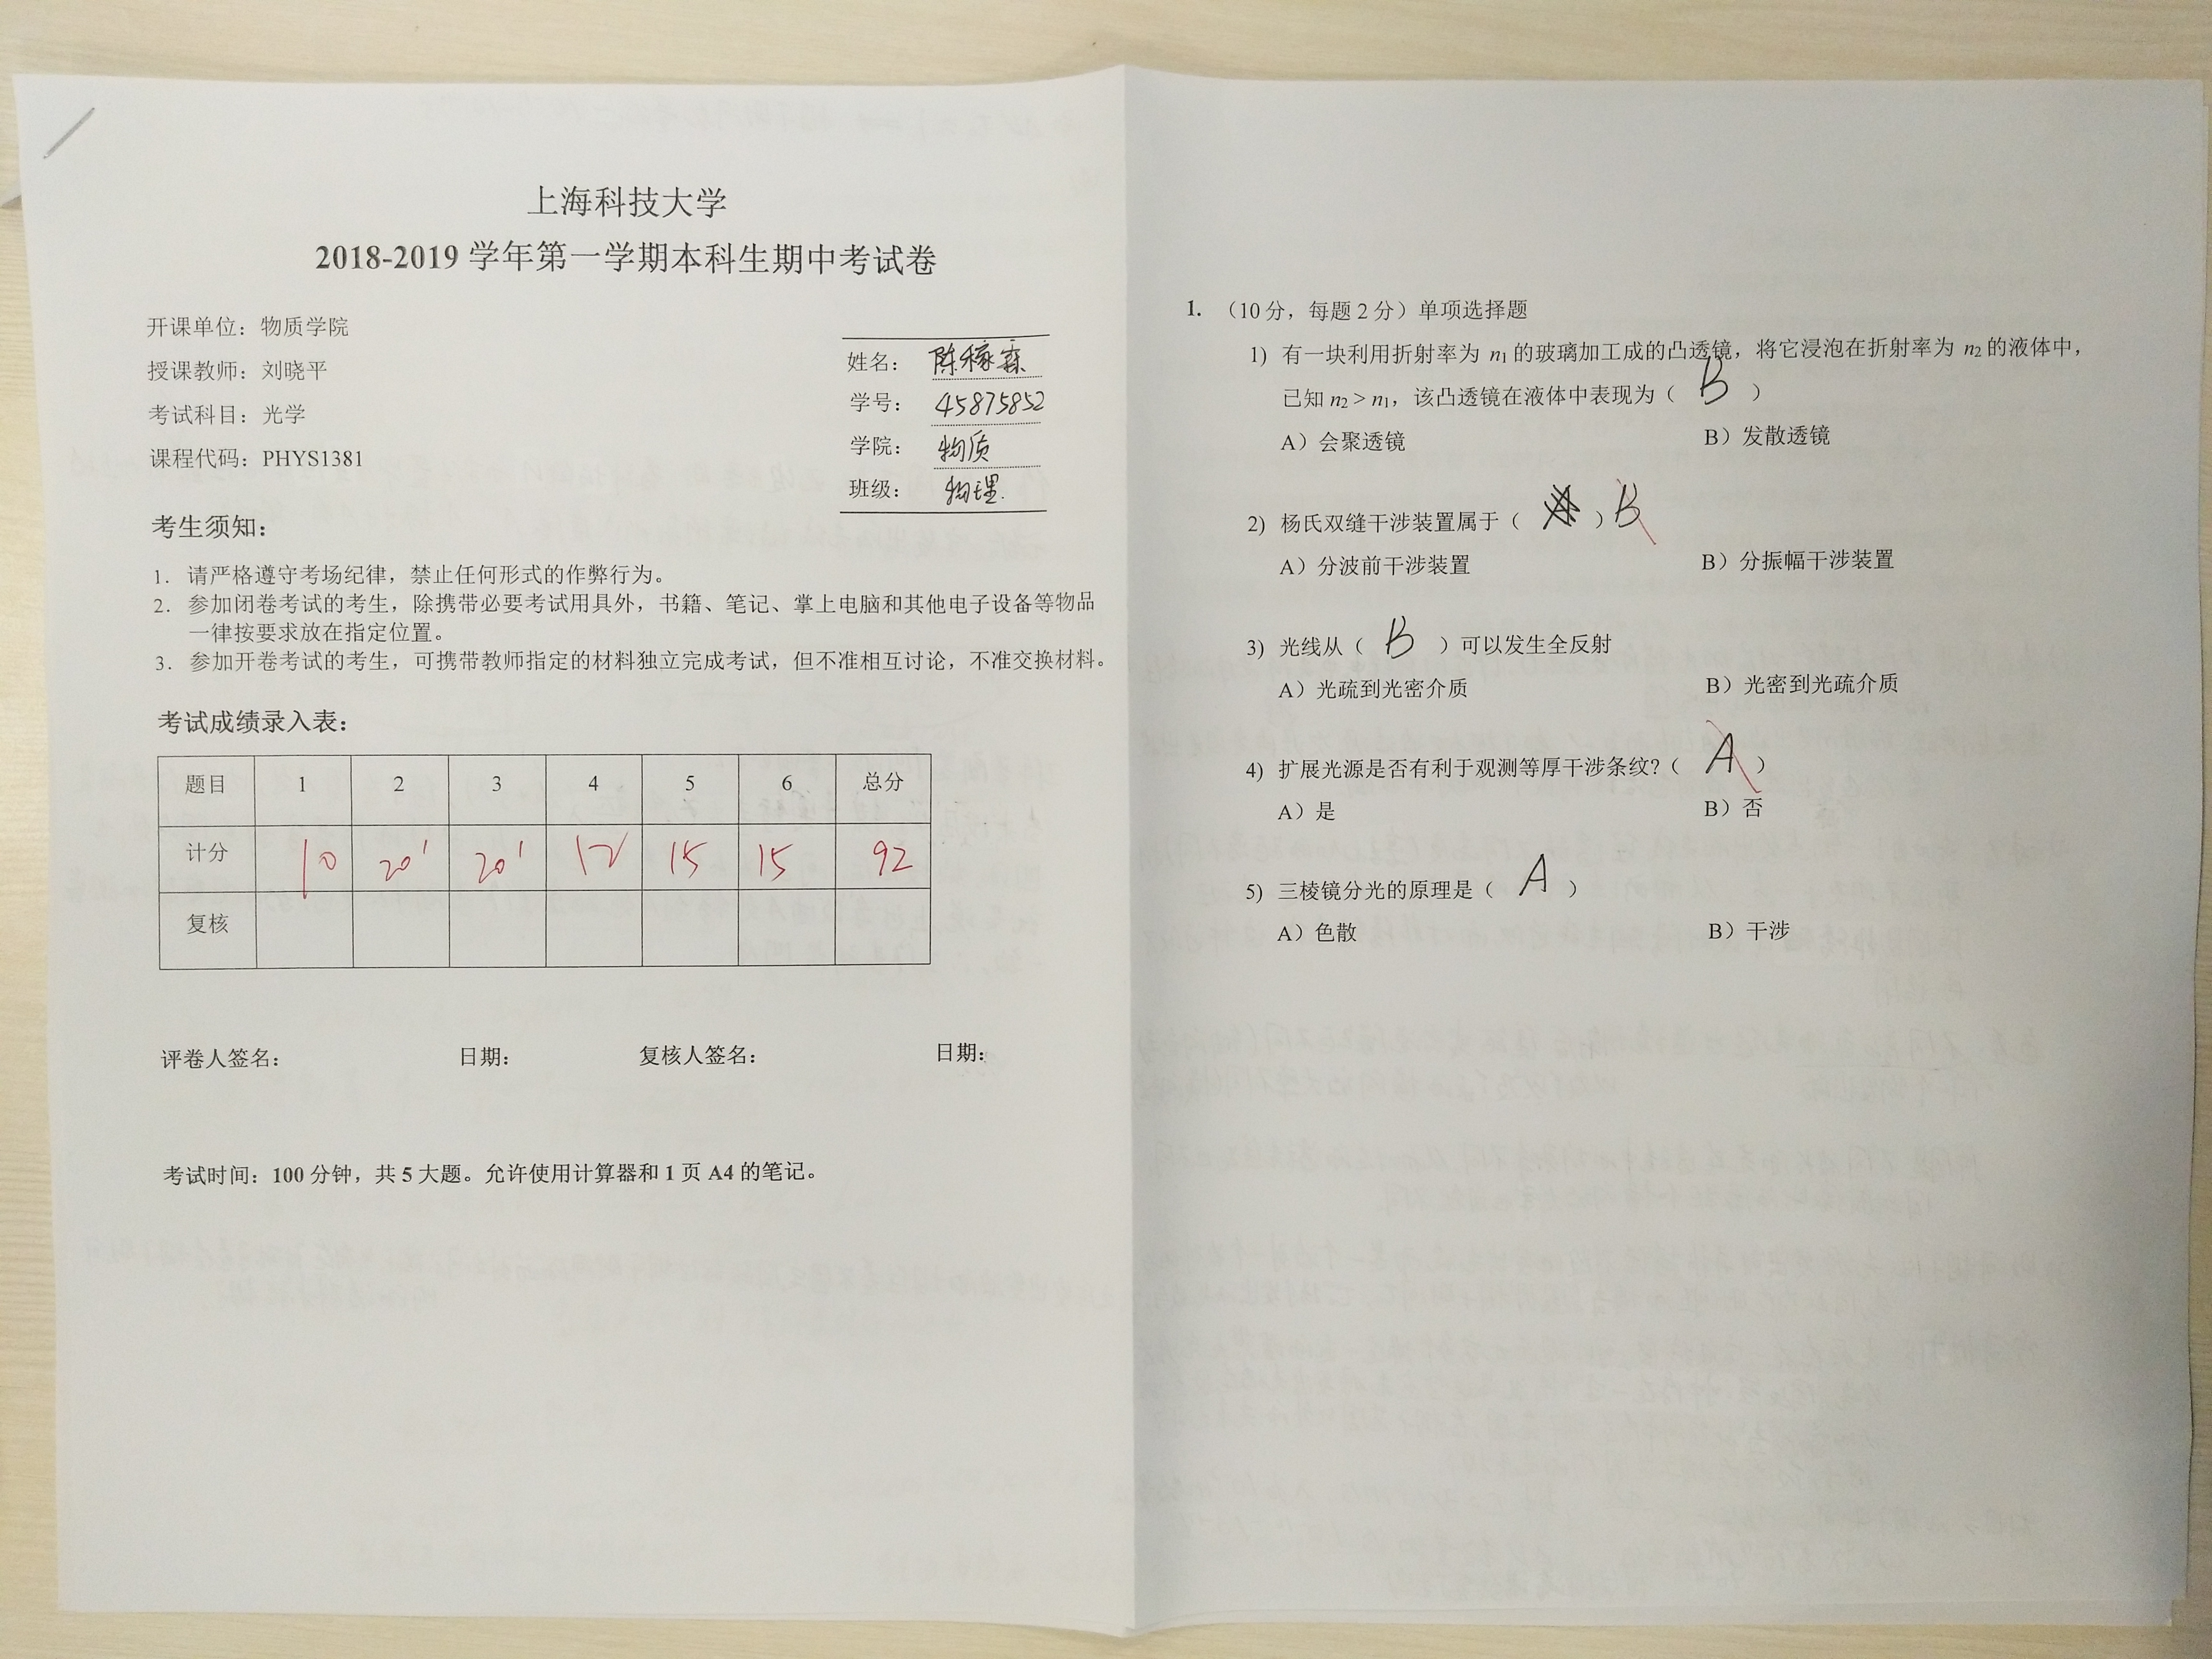 上海科技大学
2018-2019 学年第一学期本科生期中考试卷
开课单位：物质学院
授课教师：刘晓平
考试科目：光学
课程代码：PHYS1381
姓名：陈稼森
学号：45875852
学院：物质
班级：物理.
考生须知：
1. 请严格遵守考场纪律，禁止任何形式的作弊行为。
2. 参加闭卷考试的考生，除携带必要考试用具外，书籍、笔记、掌上电脑和其他电子设备等物品
一律按要求放在指定位置。
3. 参加开卷考试的考生，可携带教师指定的材料独立完成考试，但不准相互讨论，不准交换材料。
考试成绩录入表：
题目 1 2 3 4 5 6 总分
计分 10 20' 20' 12 15 15 92
复核
评卷人签名： 日期： 复核人签名： 日期：
考试时间：100 分钟，共 5 大题。允许使用计算器和 1 页 A4 的笔记。
1. （10 分，每题 2 分）单项选择题
1) 有一块利用折射率为 n1 的玻璃加工成的凸透镜，将它浸泡在折射率为 n2 的液体中，
已知 n2 > n1，该凸透镜在液体中表现为（ B ）
A）会聚透镜 B）发散透镜
2) 杨氏双缝干涉装置属于（ ）B
A）分波前干涉装置 B）分振幅干涉装置
3) 光线从（ B ）可以发生全反射
A）光疏到光密介质 B）光密到光疏介质
4) 扩展光源是否有利于观测等厚干涉条纹?（ A ）
A）是 B）否
5) 三棱镜分光的原理是（ A ）
A）色散 B）干涉